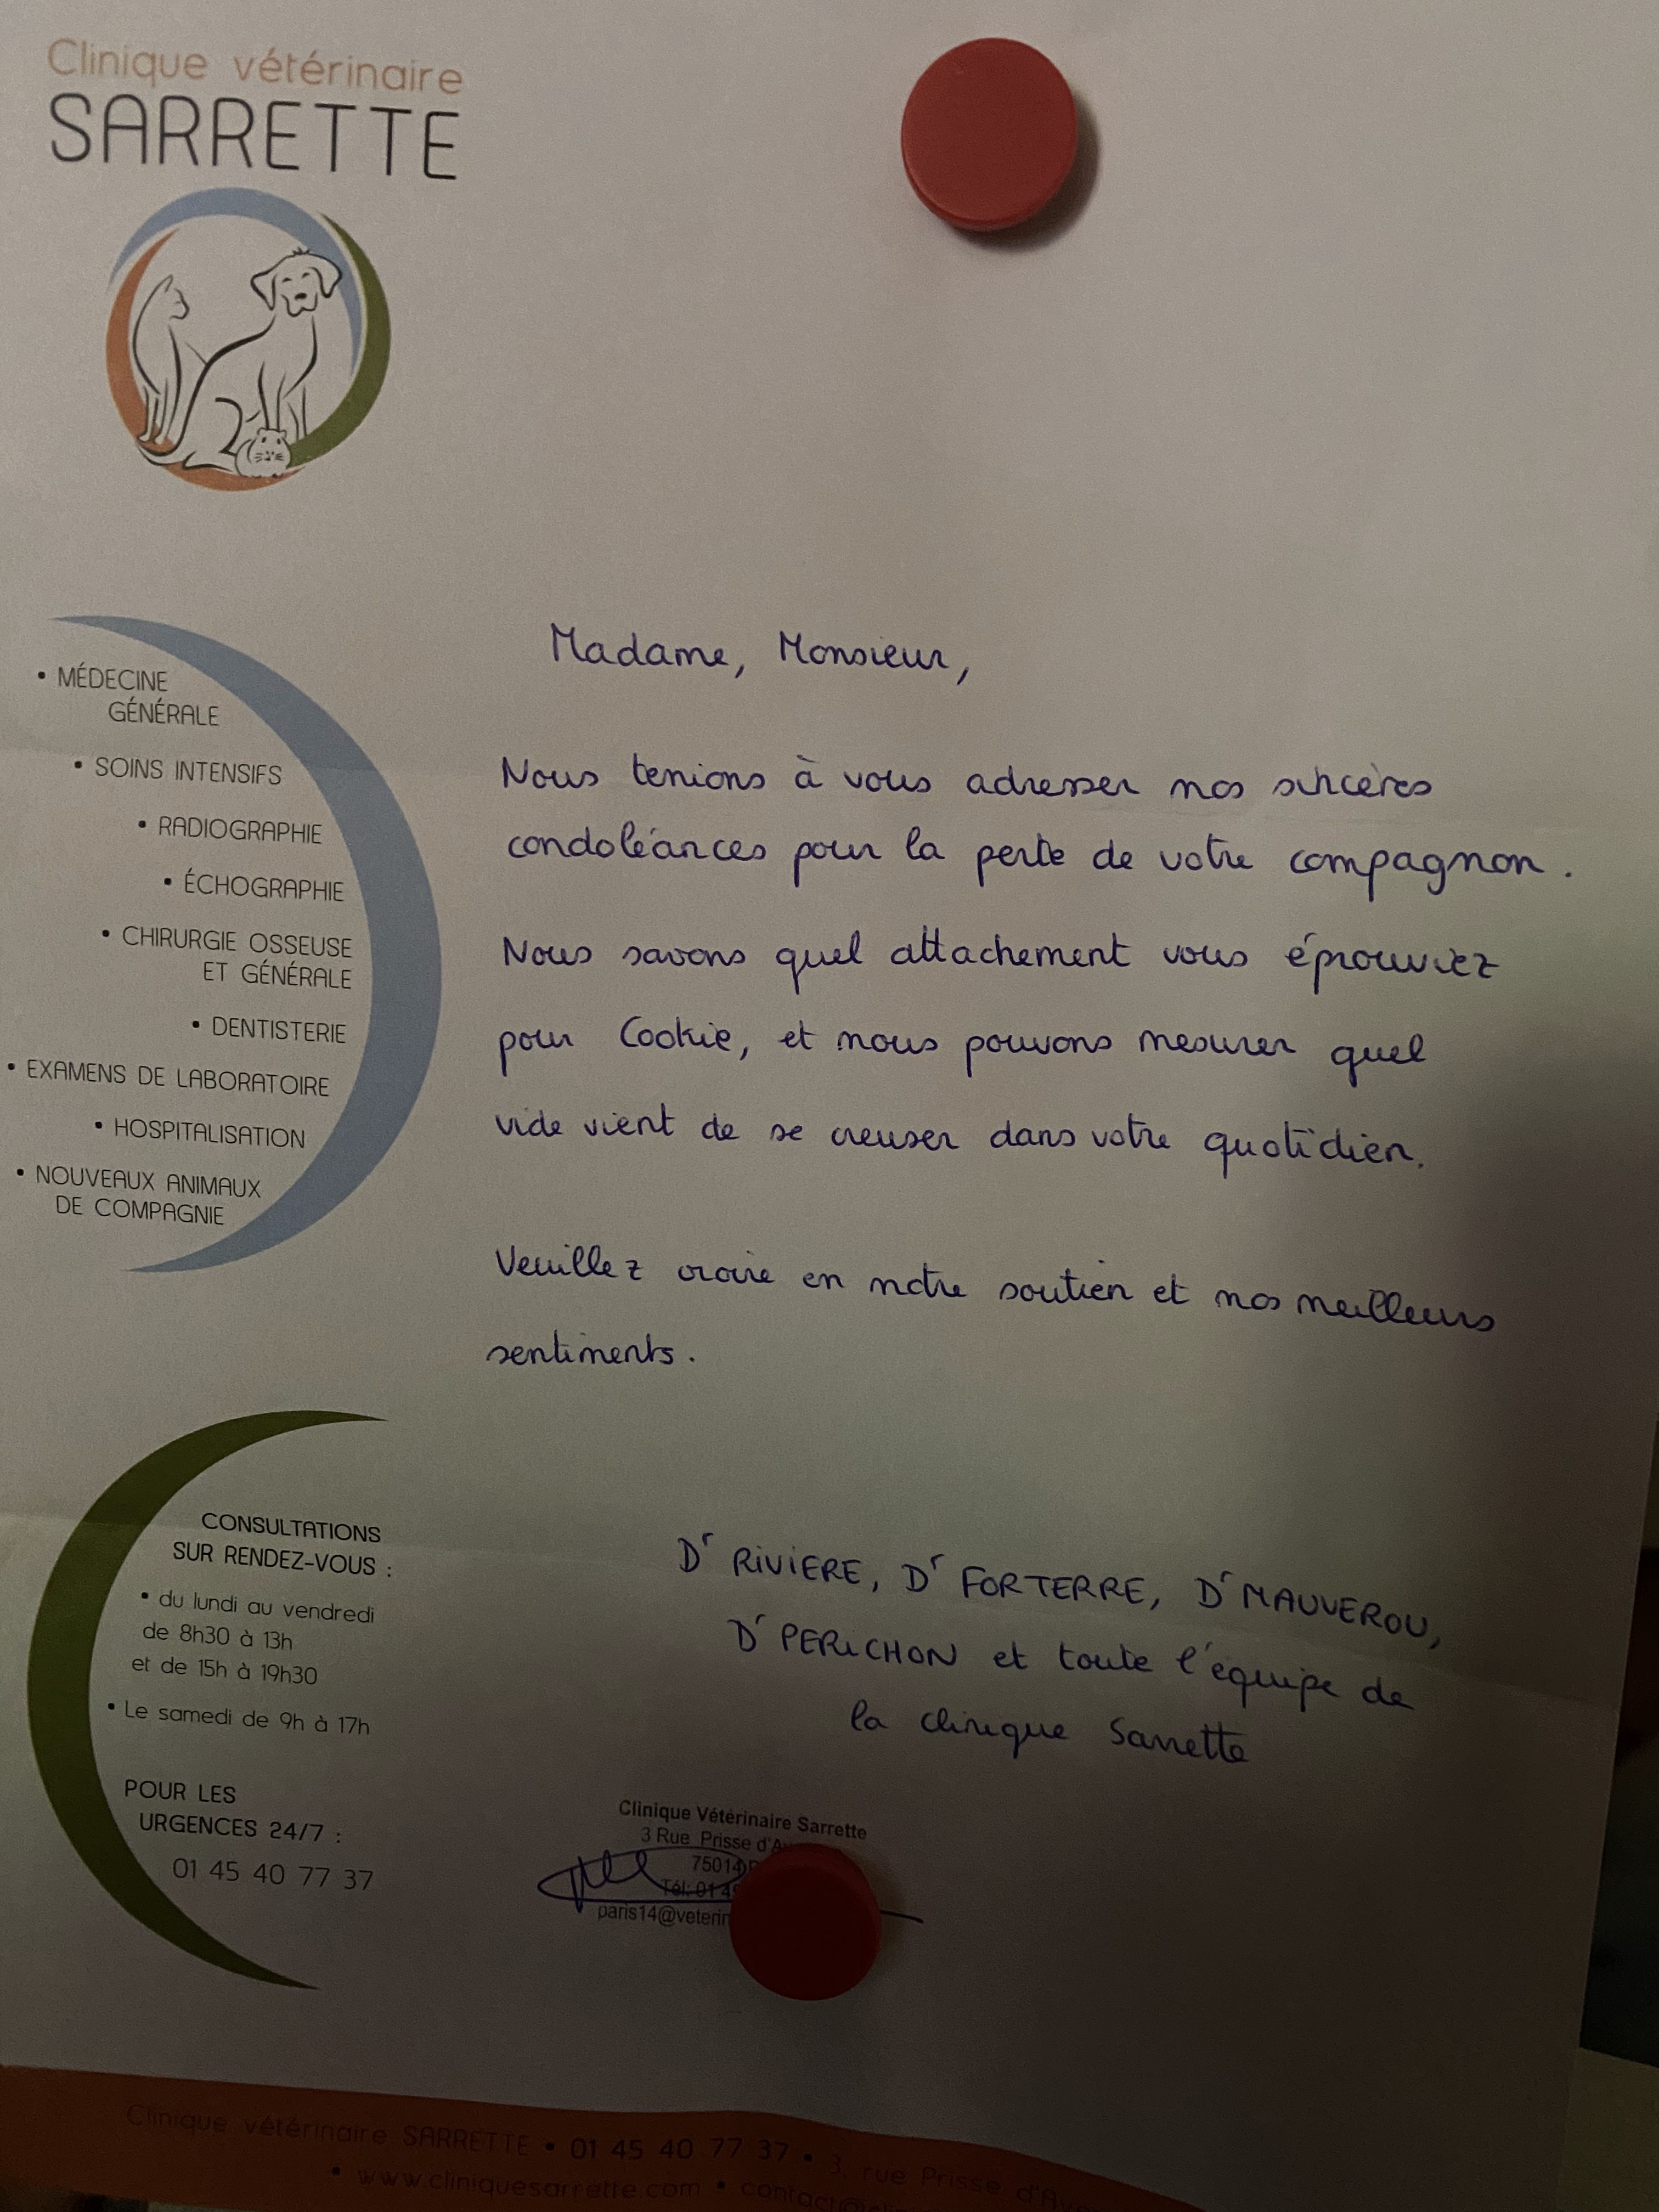 Clinique vétérinaire
SARRETTE
• MÉDECINE
GÉNÉRALE
• SOINS INTENSIFS
• RADIOGRAPHIE
• ÉCHOGRAPHIE
• CHIRURGIE OSSEUSE
ET GÉNÉRALE
• DENTISTERIE
• EXAMENS DE LABORATOIRE
• HOSPITALISATION
• NOUVEAUX ANIMAUX
DE COMPAGNIE
Madame, Monsieur,
Nous tenions à vous adresser nos sincères
condoléances pour la perte de votre compagnon.
Nous savons quel attachement vous éprouviez
pour Cookie, et nous pouvons mesurer quel
vide vient de se creuser dans votre quotidien.
Veuillez croire en notre soutien et nos meilleurs
sentiments.
CONSULTATIONS
SUR RENDEZ-VOUS :
• du lundi au vendredi
de 8h30 à 13h
et de 15h à 19h30
• Le samedi de 9h à 17h
POUR LES
URGENCES 24/7 :
01 45 40 77 37
Dr RIVIERE, Dr FORTERRE, Dr MAUVEROU,
Dr PERICHON et toute l'équipe de
la clinique Sarrette
Clinique Vétérinaire Sarrette
3 Rue Prisse d'Av
75014
Tél: 01 45
paris14@veterin
Clinique vétérinaire SARRETTE • 01 45 40 77 37 • 3, rue Prisse d'Ave
• www.cliniquesarrette.com • contact@clin